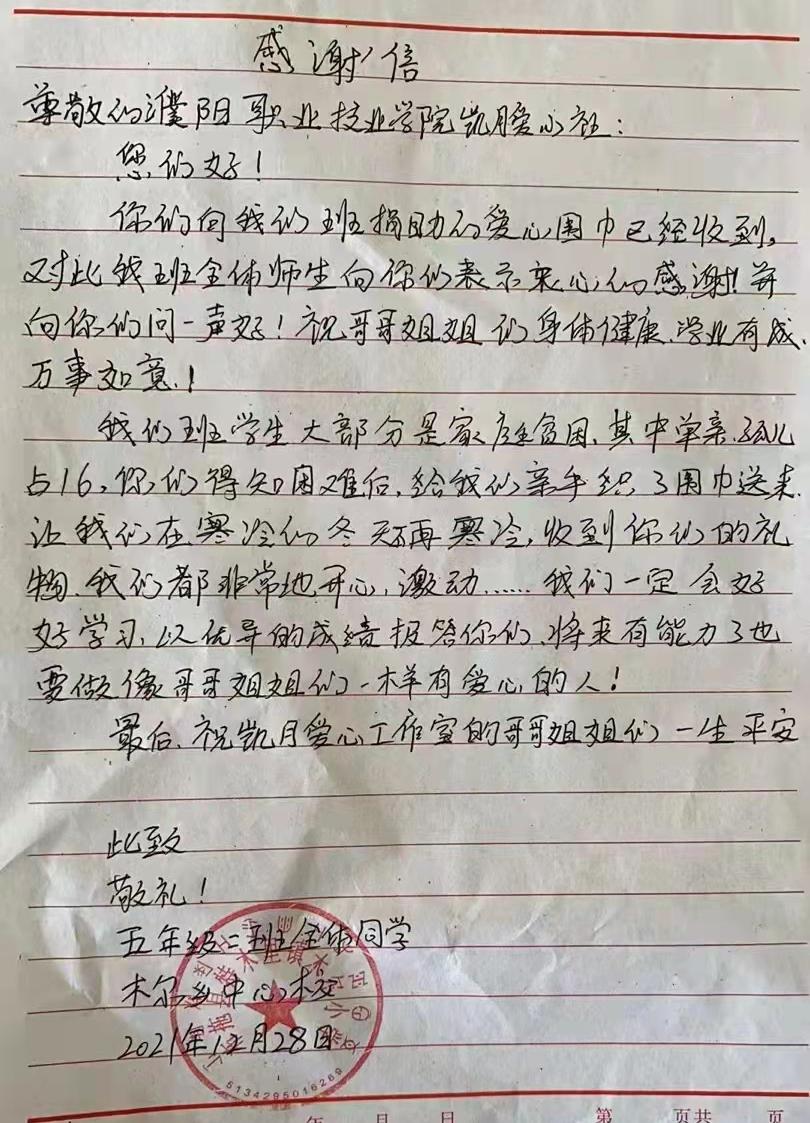 感谢信
尊敬的濮阳职业技业学院凯月爱心社：
您们好！
你们向我们班捐助的爱心围巾已经收到，
对此我班全体师生向你们表示衷心的感谢！并
向你们问一声好！祝哥哥姐姐们身体健康、学业有成、
万事如意！
我们班学生大部分是家庭贫困，其中单亲、孤儿
占16，你们得知困难后，给我们亲手织了围巾送来，
让我们在寒冷的冬天不再寒冷，收到你们的礼
物，我们都非常地开心，激动……我们一定会好
好学习，以优异的成绩报答你们，将来有能力了也
要做像哥哥姐姐们一样有爱心的人！
最后，祝凯月爱心工作室的哥哥姐姐们一生平安
此致
敬礼！
五年级二班全体同学
木尔乡中心校
2021年12月28日
5134295016269
年 月 日 第 页共 页